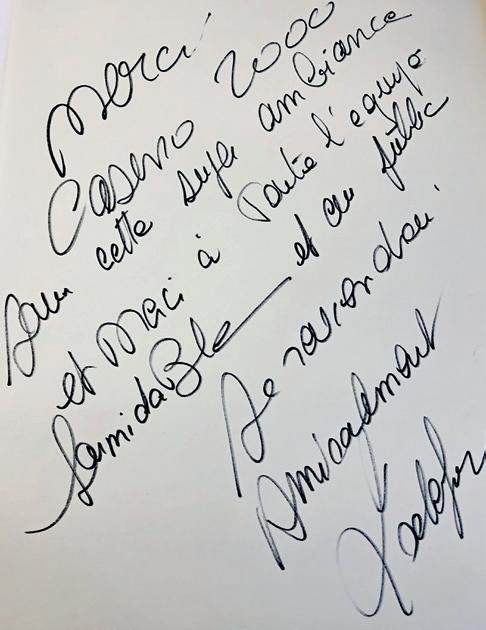 Merci
Casino 2000
Pour cette super ambiance
et Merci à Toute l'équipe
formidable et au public
Je reviendrai
Amicalement